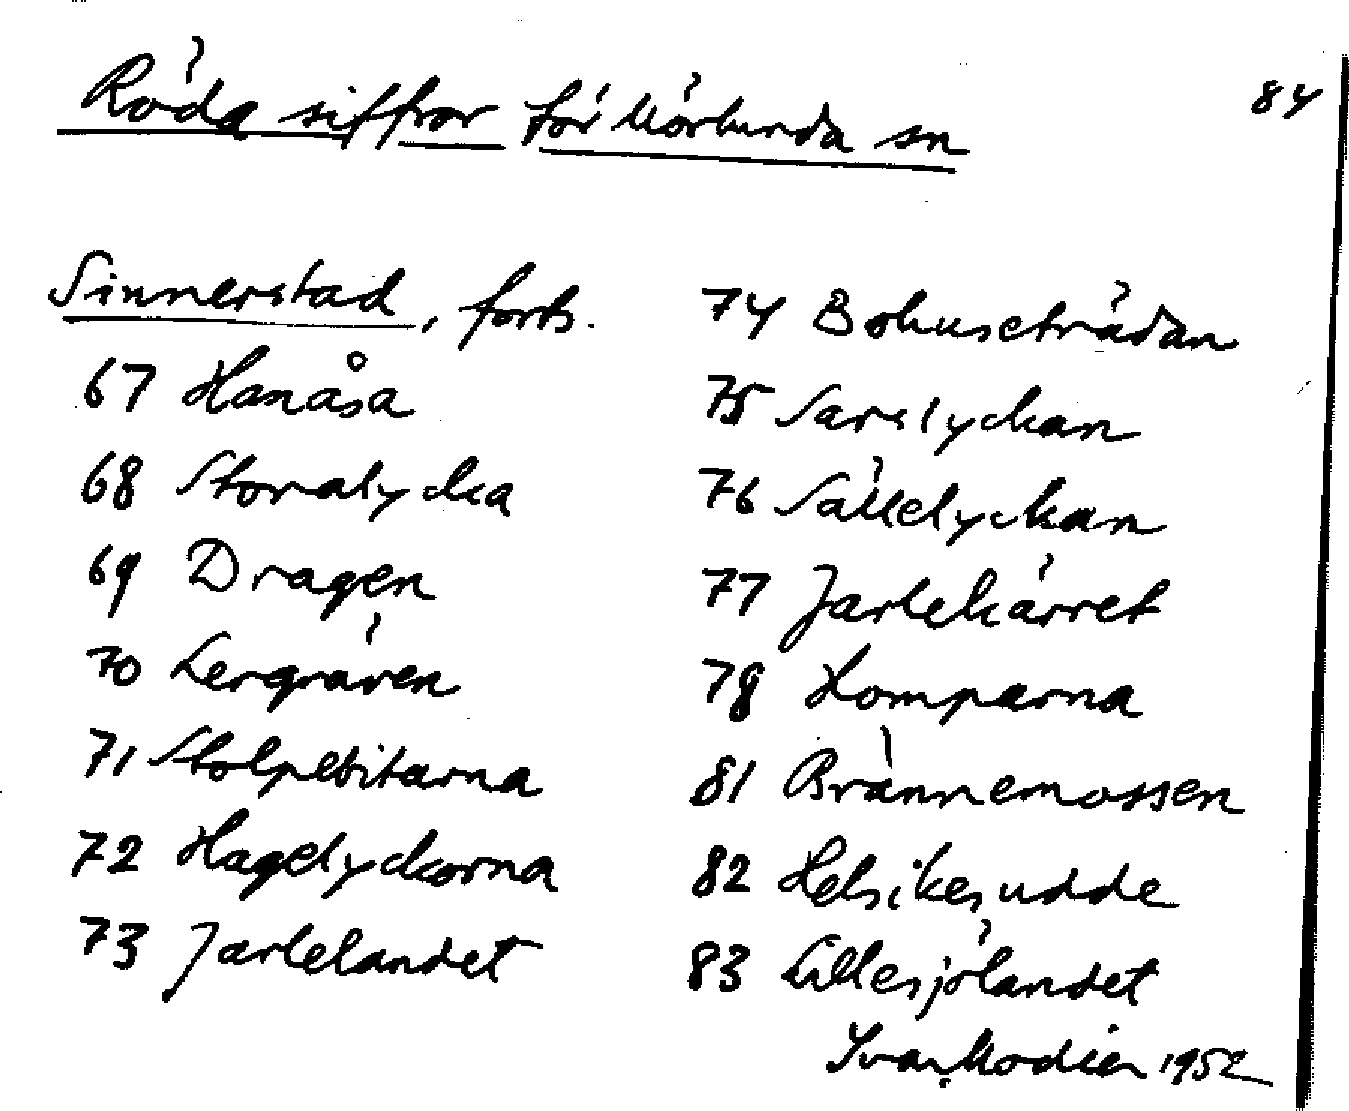 Röda siffror för Mörlunda sn
84
Sinnerstad, forts.
67 Hanåsa
68 Storalycka
69 Dragen
70 Lergraven
71 Stolpebitarna
72 Hagelyckorna
73 Jarlelandet
74 Bohuseträdan
75 Sarslyckan
76 Sällelyckan
77 Jarlekärret
78 Lomparna
81 Brännemossen
82 Helsikesudde
83 Lillesjölandet
Ivar Modéer 1952